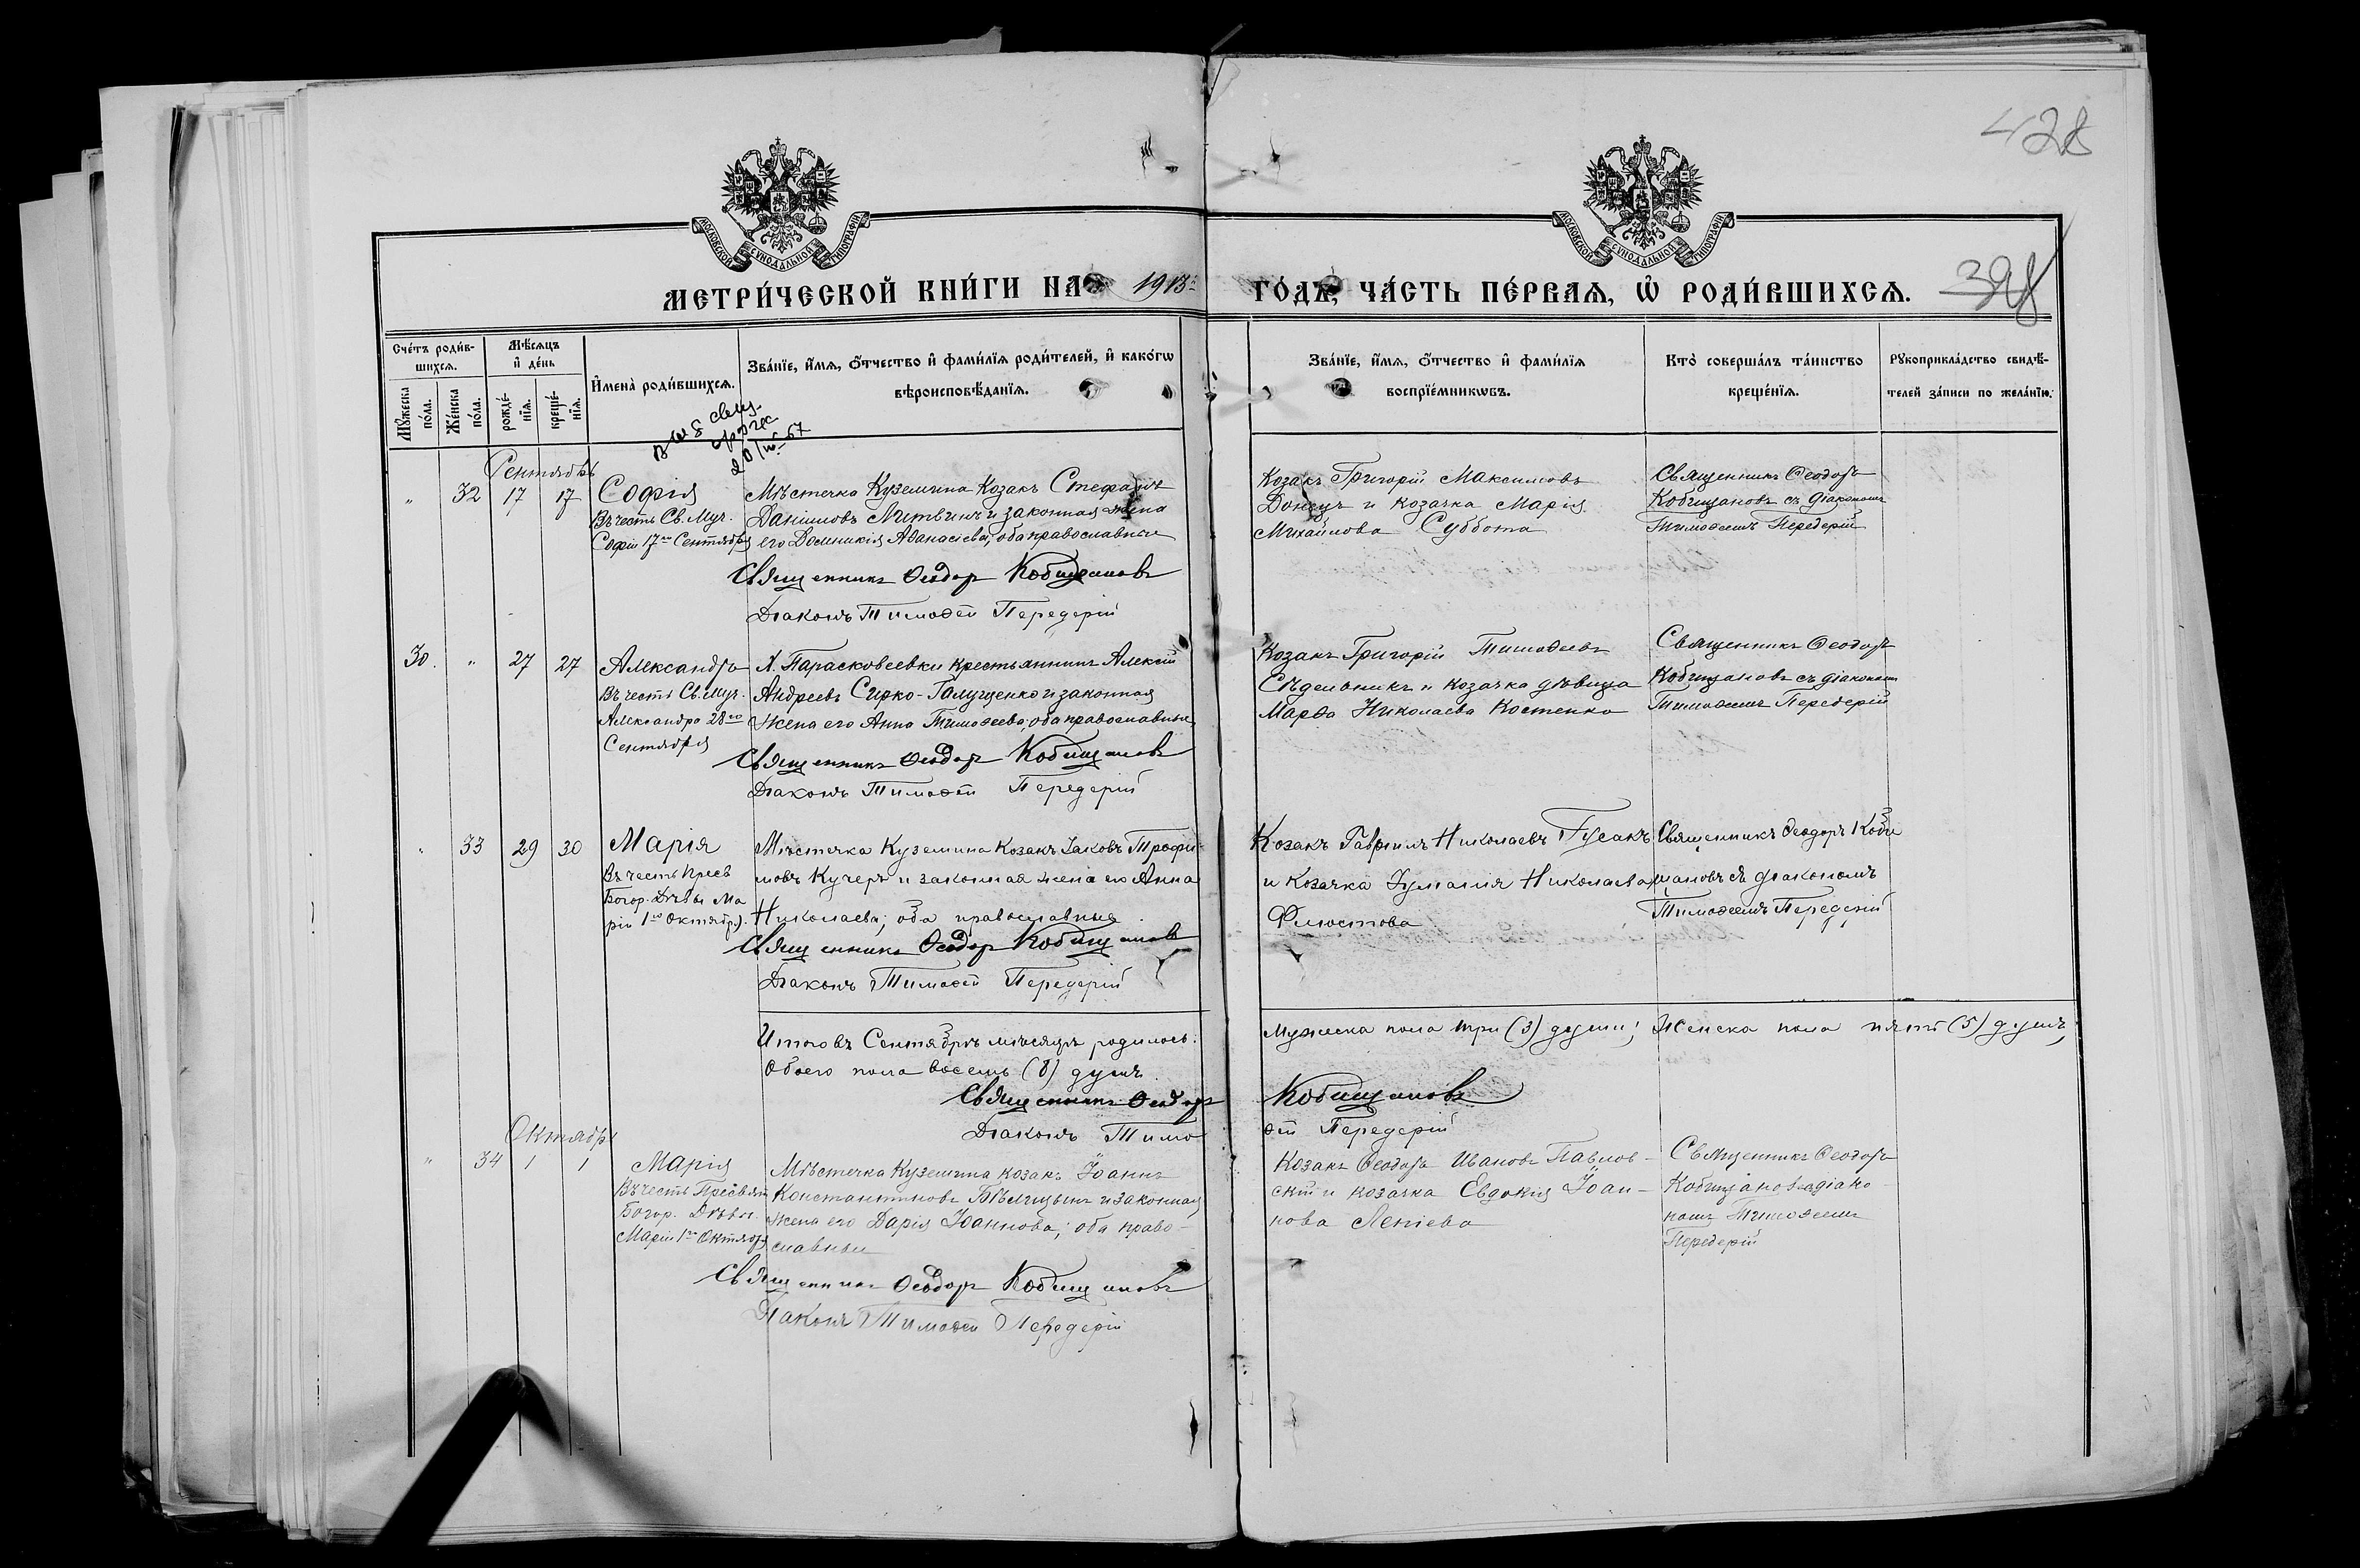 428
МОСКОВСКОЙ СѴНОДАЛЬНОЙ ТИПОГРАФІИ
МОСКОВСКОЙ СѴНОДАЛЬНОЙ ТИПОГРАФІИ
МЕТРИ́ЧЕСКОЙ КНИ́ГИ НА 1913 ГО́ДЪ, ЧА́СТЬ ПЕ́РВАѦ, Ѡ҆ РОДИ́ВШИХСѦ. 398
Сче́тъ роди́в-
шихсѧ.
Мꙋ́жеска по́ла.
Же́нска по́ла.
Мѣ́сѧцъ
и҆ де́нь
рожде́-
нїѧ.
креще́-
нїѧ.
И҆мена̀ роди́вшихсѧ.
Зва́нїе, и҆́мѧ, ѻ҆́тчество и҆ фами́лїѧ роди́телей, и҆ како́гѡ
вѣроисповѣ́данїѧ.
Зва́нїе, и҆́мѧ, ѻ҆́тчество и҆ фами́лїѧ
воспрїе́мникѡвъ.
Кто̀ соверша́лъ та́инство
креще́нїѧ.
Рꙋкоприкла́дство свидѣ́-
телей за́писи по жела́нїю.
Сентябрь
" 32 17 17 Софія
Въ честь Св. Муч.
Софіи 17го Сентября
Мѣстечка Куземина Козакъ Стефанъ
Даниловъ Литвинъ и законная жена
его Домникія Аѳанасіева, оба православные
Священникъ Ѳеодоръ Кобищановъ
Діаконъ Тимоѳей Передерій
Козакъ Григорій Максимовъ
Донецъ и козачка Марія
Михайлова Суббота
Священникъ Ѳеодоръ
Кобищановъ съ діакономъ
Тимоѳеемъ Передерій
30. " 27 27 Александръ
Въ честь Св. Муч.
Александра 28го
Сентября
Х. Парасковеевки крестьянинъ Алексій
Андреевъ Сирко-Галущенко и законная
жена его Анна Тимоѳеева, оба православные
Священникъ Ѳеодоръ Кобищановъ
Діаконъ Тимоѳей Передерій
Козакъ Григорій Тимоѳеевъ
Сѣдельникъ и козачка дѣвица
Марѳа Николаева Костенко
Священникъ Ѳеодоръ
Кобищановъ съ діакономъ
Тимоѳеемъ Передерій
" 33 29 30 Марія
Въ честь Пресв
Богор. Дѣвы Ма
ріи 1го Октября).
Мѣстечка Куземина Козакъ Іаковъ Трофи-
мовъ Кучеръ и законная жена его Анна
Николаева; оба православные.
Священникъ Ѳеодоръ Кобищановъ
Діаконъ Тимоѳей Передерій
Козакъ Гавріилъ Николаевъ Гусакъ
и козачка Іуліанія Николаева
Священникъ Ѳеодоръ Коби
щановъ съ діакономъ
Тимоѳеемъ Передерій
Итого въ Сентябрѣ мѣсяцѣ родилось:
Мужеска пола три (3) души; Женска пола пять (5) душъ;
Обоего пола восемь (8) душъ.
Священникъ Ѳеодоръ Кобищановъ
Діаконъ Тимоѳей Передерій
Октябрь
" 34 1 1 Марія
Въ честь Пресвят
Богор. Дѣвы
Маріи 1го Октября
Мѣстечка Куземина козакъ Іоаннъ
Константиновъ Бѣлицынъ и законная
жена его Дарія Іоаннова; оба право-
славные
Священникъ Ѳеодоръ Кобищановъ
Діаконъ Тимоѳей Передерій
Козакъ Ѳеодоръ Ивановъ Павлов-
скій и козачка Евдокія Іоан-
нова
Священникъ Ѳеодоръ
Кобищановъ съ діако-
номъ Тимоѳеемъ
Передерій